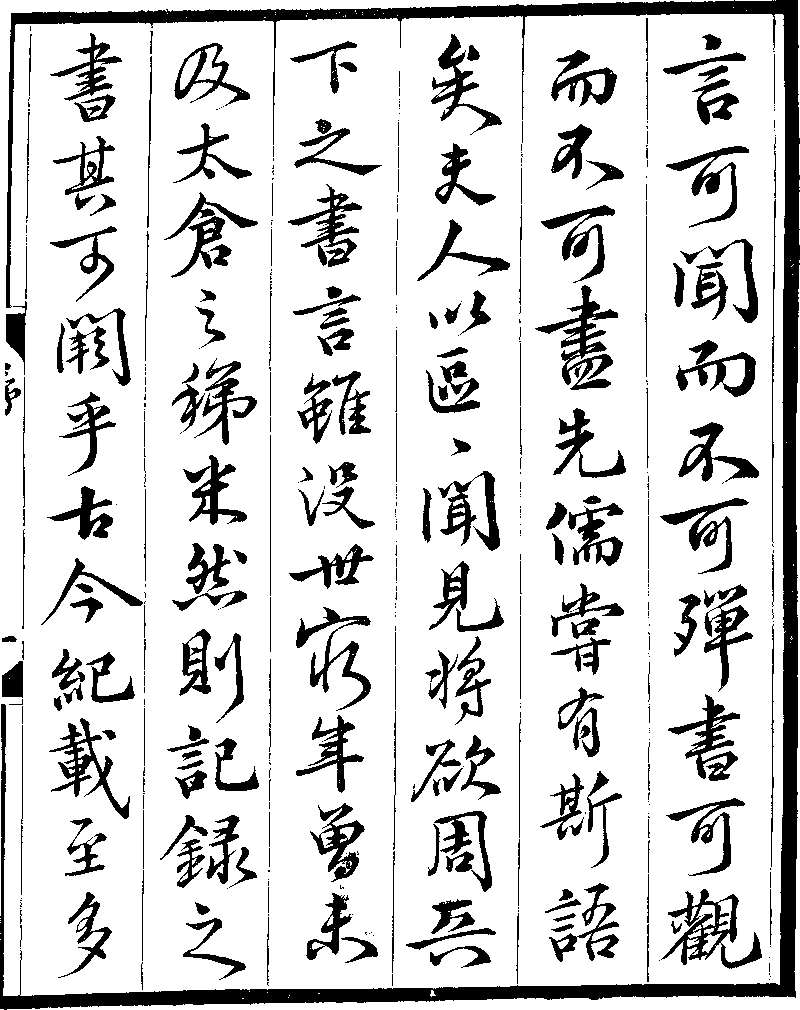 言可聞而不可殫書可觀
而不可盡先儒嘗有斯語
矣夫人以區〻聞見將欲周天
下之書言雖没世窮年曾未
及太倉之稊米然則記録之
書其可闕乎古今紀載至多
序
一